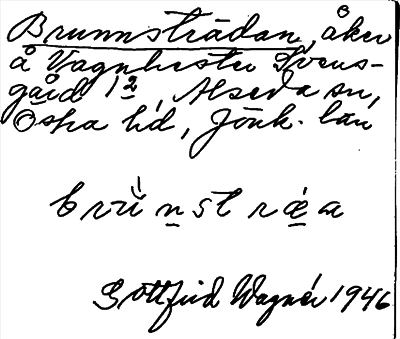 Brunnsträdan, åker
å Vagnhester Svens-
gård 1 2, Alseda sn,
Östra hd, Jönk. län
brŭn̲stræ̲a
Gottfrid Wagnér 1946